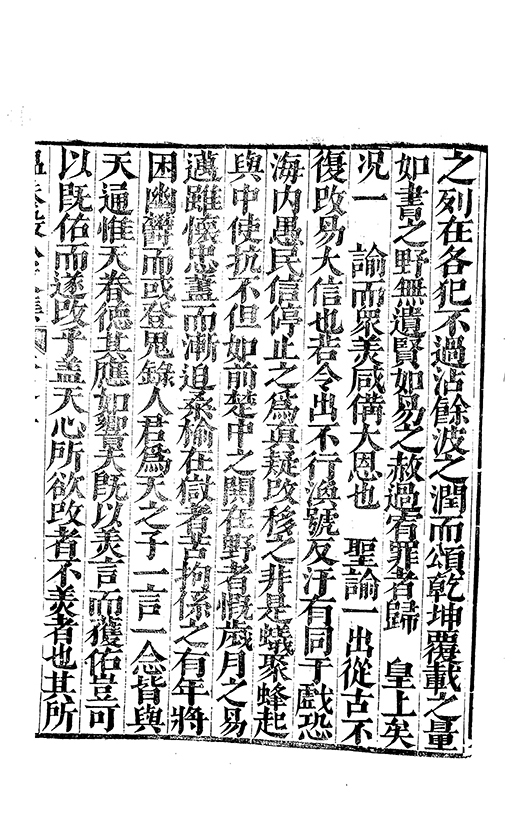 之列在各犯不過沾餘波之潤而頌乾坤覆載之量
如書之野無遺賢如易之赦過宥罪者歸　皇上矣
况一　諭而衆美咸備大恩也　聖諭一出從古不
復改易大信也若令出不行渙號反汗有同于戲恐
海内愚民信停止之爲眞疑改移之非是蟻聚蜂起
與中使抗不但如前楚中之閧在野者慨歲月之易
邁雖懷忠藎而漸迫桑榆在獄者苦拘係之有年將
困幽欝而或登鬼錄人君爲天之子一言一念皆與
天通惟天眷德其應如響天既以美言而獲佑豈可
以既佑而遂改乎盖天心所欲改者不美者也其所